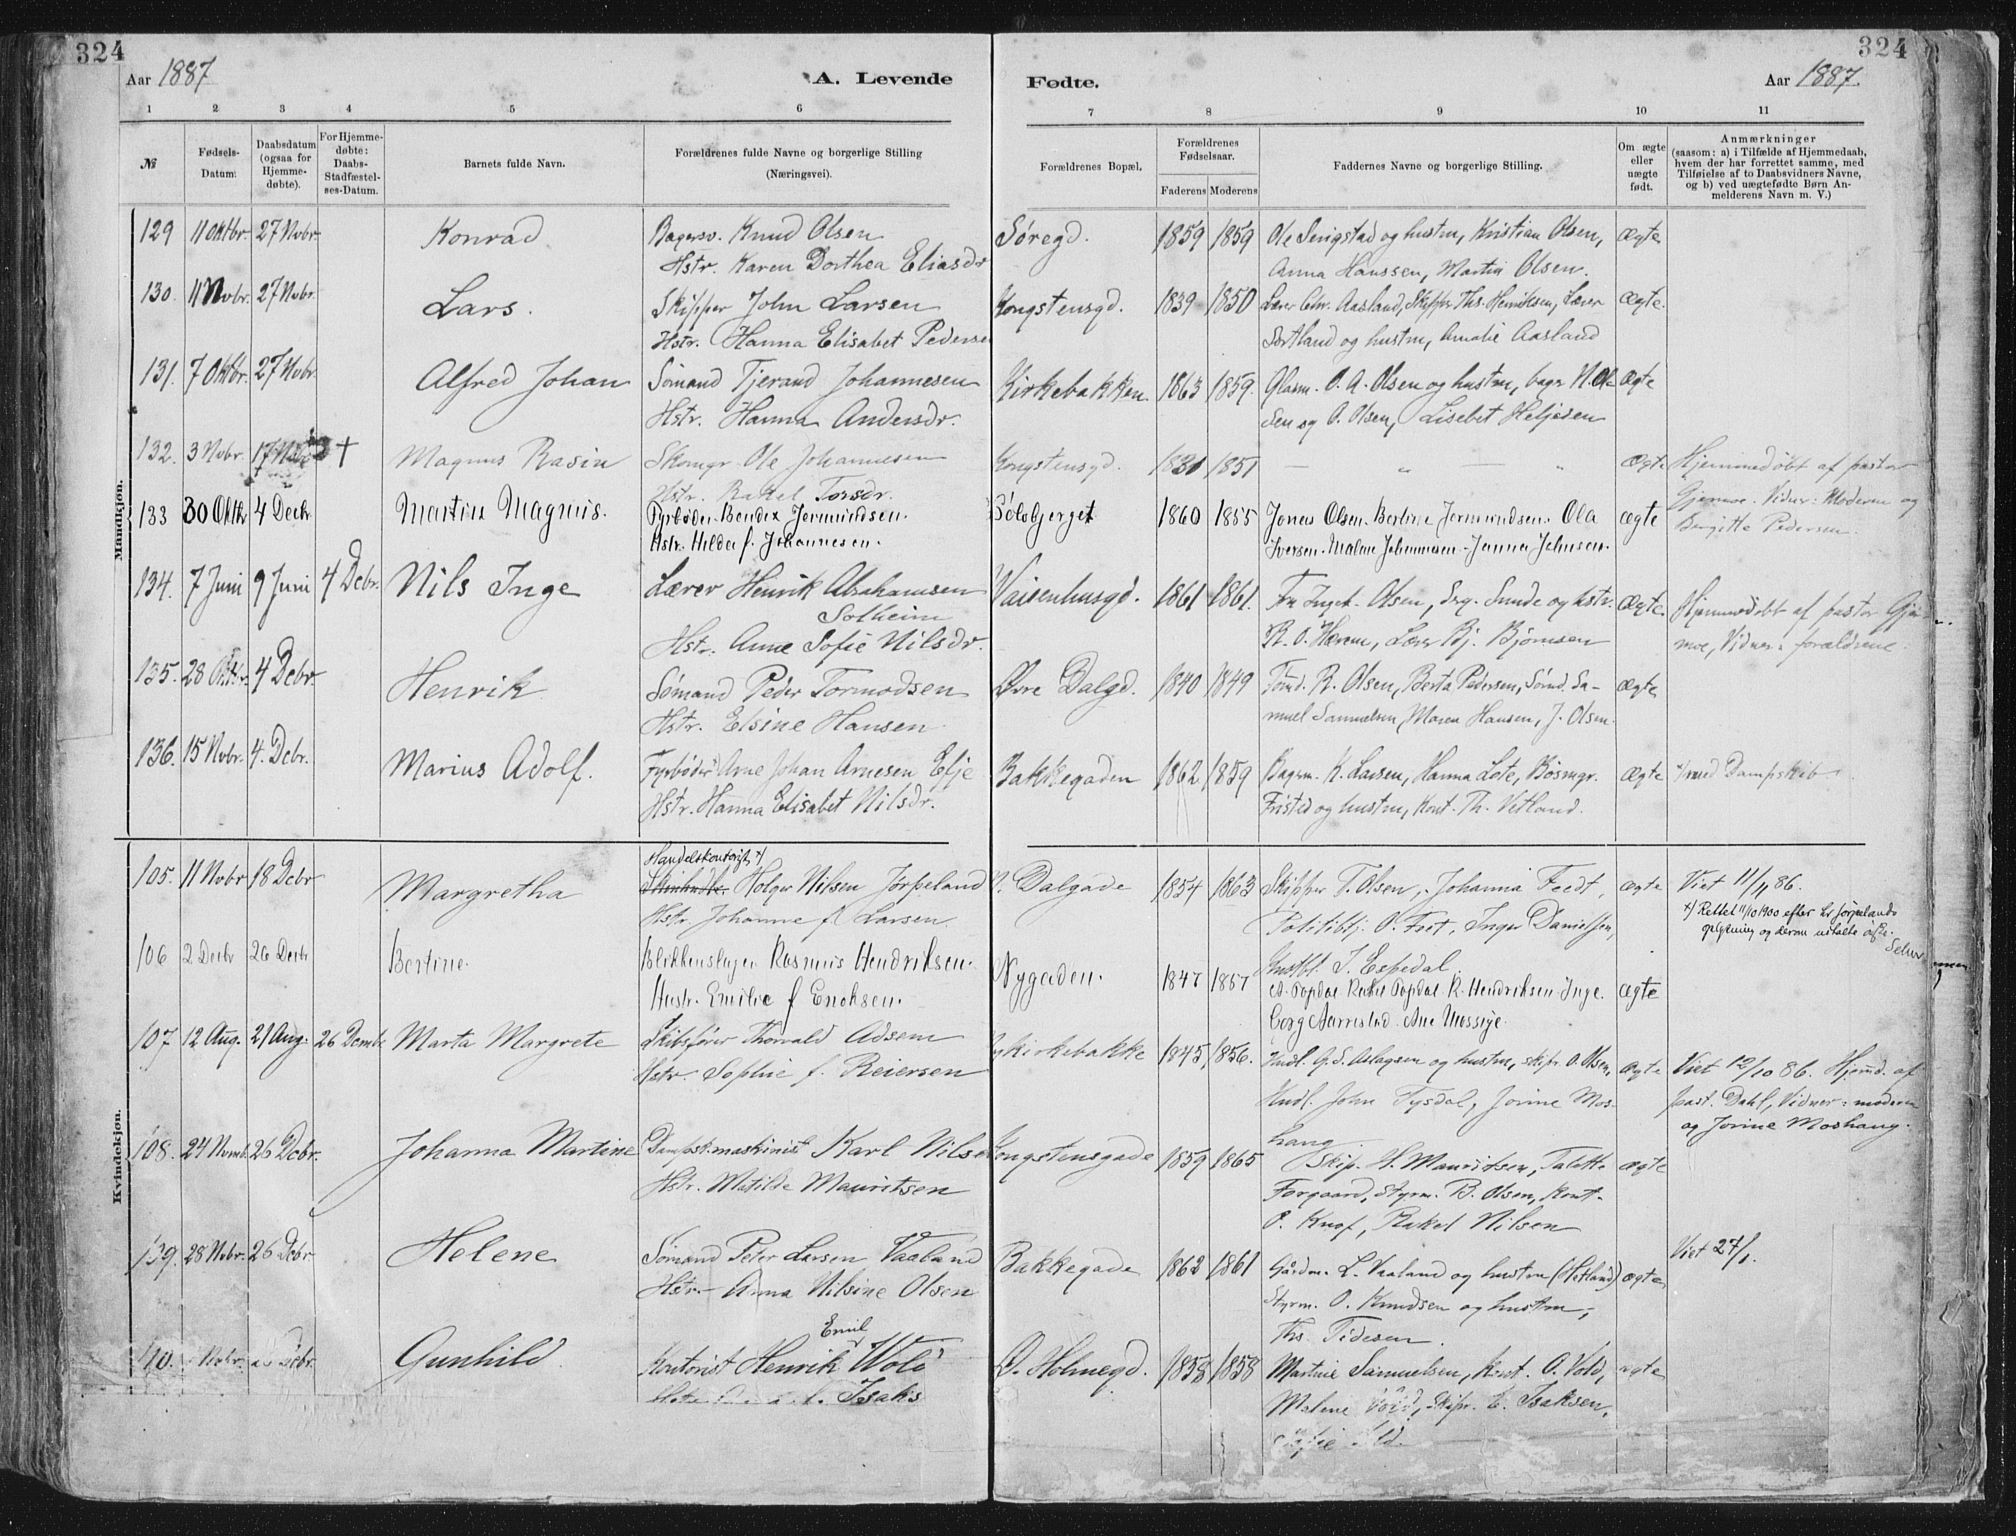 324
324
Aar 1887
A. Levende
Fødte.
Aar 1887.
1 2 3 4 5 6 7 8 9 10 11
№
Fødsels-Datum.
Daabsdatum (ogsaa for Hjemme-døbte).
For Hjemme-døbte: Daabs-Stadfæstel-ses-Datum.
Barnets fulde Navn.
Forældrenes fulde Navne og borgerlige Stilling (Næringsvei).
Forældrenes Bopæl.
Forældrenes Fødselsaar.
Faderens Moderens
Faddernes Navne og borgerlige Stilling.
Om ægte eller uægte født.
Anmærkninger (saasom: a) i Tilfælde af Hjemmedaab, hvem der har forrettet samme, med Tilføielse af to Daabsvidners Navne, og b) ved uægtefødte Børn An-melderens Navn m. V.)
Mandkjøn.
129 11 Oktbr. 27 Nvbr. Konrad Bagersv. Knud Olsen Søregd. 1859 1859 Ole Serigstad og hustru, Kristian Olsen, Ægte
Hstr. Karen Dorthea Eliasdr Anna Hanssen, Martin Olsen.
130. 11 Nvbr. 27 Nvbr. Lars. Skipper John Larsen Kongstensgd. 1839 1850 Lærer Chr. Aasland, Skippr Ths. Henriksen, Lærer Ægte.
Hstr. Hanna Elisabet Pederse og hustru, Amalie Aasland
131. 7 Oktbr. 27 Nvbr. Alfred Johan Sømand Tjerand Johannesen Kirkebakken. 1863 1859. Glasm. O. A. Olsen og hustru, Ægte
Hstr. Hanna Andersdr. sen og O. Olsen, Lisebet Heljesen
132. 3 Nvbr. 17 Nvbr † Magnus Rasin Skomgr. Ole Johannesen Kongstensgd. 1851 — „ — „ Ægte Hjemmedøbt af pastor
Hstr. Rakel Torsdr. Gjemoe. Vidner: Moderen og
Birgitte Pedersen.
133 30 Oktbr 4 Decbr Martin Magnus. Fyrbøder Bendix Jermundsen. Sølvbjerget 1860 1855 Jonas Olsen. Bertine Jermundsen. Ola ægte
Hstr. Hilda f. Johannesen. Iversen. Malene Johannesen. Janna Johnsen.
134. 7 Juni 9 Juni 4 Dcbr. Nils Inge Lærer Henrik Abrahamsen Vaisenhusgd. 1861 1861. Fru Ingeb. Olsen, Sunde og hstr. Ægte. Hjemmedøbt af pastor Gje-
Solheim
Hstr. Anne Sofie Nilsdr. R. O. Hæren, Lærer Bj. Bjørnsen moe, Vidner: forældrene.
135. 28 Oktbr. 4 Dcbr. Henrik Sømand Peder Tormodsen Øvre Dalgd. 1840 1849 Fmd. R. Olsen, Berta Pedersen, Sømd. Sa- ægte
Hstr. Elsine Hansen. muel Samuelsen, Maren Hansen, J. Olsen.
136. 15 Nvbr. 4. Dcbr. Marius Adolf. Fyrbøder Arne Johan Arnesen Efje Bakkegaden 1862 1859 Bagerm. K. Larsen, Hanna Lote, Bøsmgr. Ægte med Dampskib
Hstr. Hanna Elisabet Nilsdr. Fristed og hustru, Kont. Th. Vetland.
Kvindekjøn.
Handelskontorist x/
105. 11 Nvbr 18 Dcbr Margretha Holger Nilsen Jørpeland Ø. Dalgade 1854 1863 Skipper T. Olsen, Johanna Feedt, ægte Viet 11/4 86.
Hstr. Johanne f. Larsen. Politibtj. O. Fort, Inger Danielsen, x/ Rettet 11/10 1900 efter Hr Jørpelands
opgivning og denne
Hustbl. T. Espedal.
106 2 Decbr 26 Decbr Bertine. Blikkenslager Rasmus Hendriksen. Nygaden. 1847 1857 Rakel Popdal. R. Hendriksen. Inge- ægte
Hustr. Emilie f Enoksen. borg Aarrestad. Ane Mossige.
107. 12 Aug. 21 Aug. 26 Decmbr Marta Margrete Skibsfører Thorvald Adsem Nykirkebakke 1845 1856. Hndl. G. S. Aslagsen og hustru, skipr. O. Olsen, Ægte Viet 12/10 86. Hjemd. af
Hstr. Sophie f. Reiersen Hndl. John Tysdal, Jorine Mos- past. Dahl, Vidner: moderen
hang. og Jorine Moshaug.
108. 24 Nvmb. 26 Dcbr. Johanna Martine Dampsk.maskinist Karl Nilse Kongstensgade 1859 1865 Skip. H. Mauritsen, Talette ægte
Hstr. Matilde Mauritsen Forgaard, Styrm. B. Olsen, Kont.
P. Knof, Rakel Nilsen
109. 28 Nvbr. 26 Dcbr. Helene Sømand Peter Larsen Vaaland Bakkegade 1862 1861 Gårdm. L. Vaaland og hustru (Hetland) ægte Viet 27/1.
Hstr. Anna Nilsine Olsen Styrm. O. Knudsen og hustru,
Ths. Tidesen.
Emil
110. Nvbr. Dcbr. Gunhild Kontorist Henrik Wold Ø. Holmegd. 1858 1858 Martine Samuelsen, Kont. O. Vold, ægte
Isaks Malene Vold, Skipr. E. Isaksen,